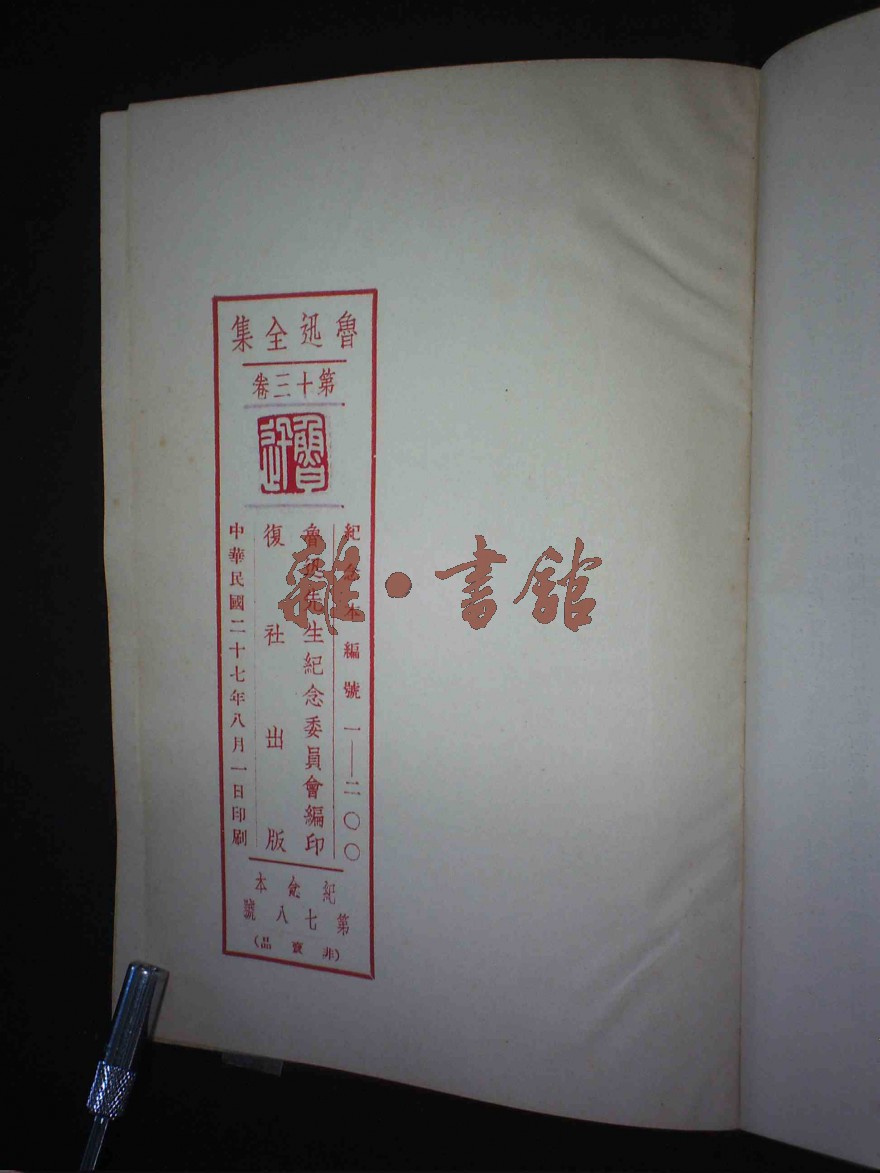 魯迅全集
第十三卷
魯迅
紀念本編號 一——二〇〇
魯迅先生紀念委員會編印
復社出版
中華民國二十七年八月一日印刷
紀念本
第七八號
(非賣品)
雜·書館